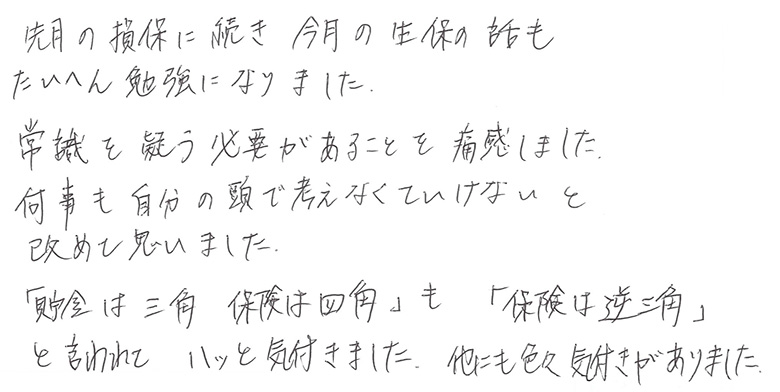 先月の損保に続き 今月の生保の話も
たいへん勉強になりました.
常識を疑う必要があることを痛感しました.
何事も自分の頭で考えなくていけないと
改めて思いました.
「貯金は三角 保険は四角」も 「保険は逆三角」
と言われて ハッと気付きました. 他にも色々気付きがありました.